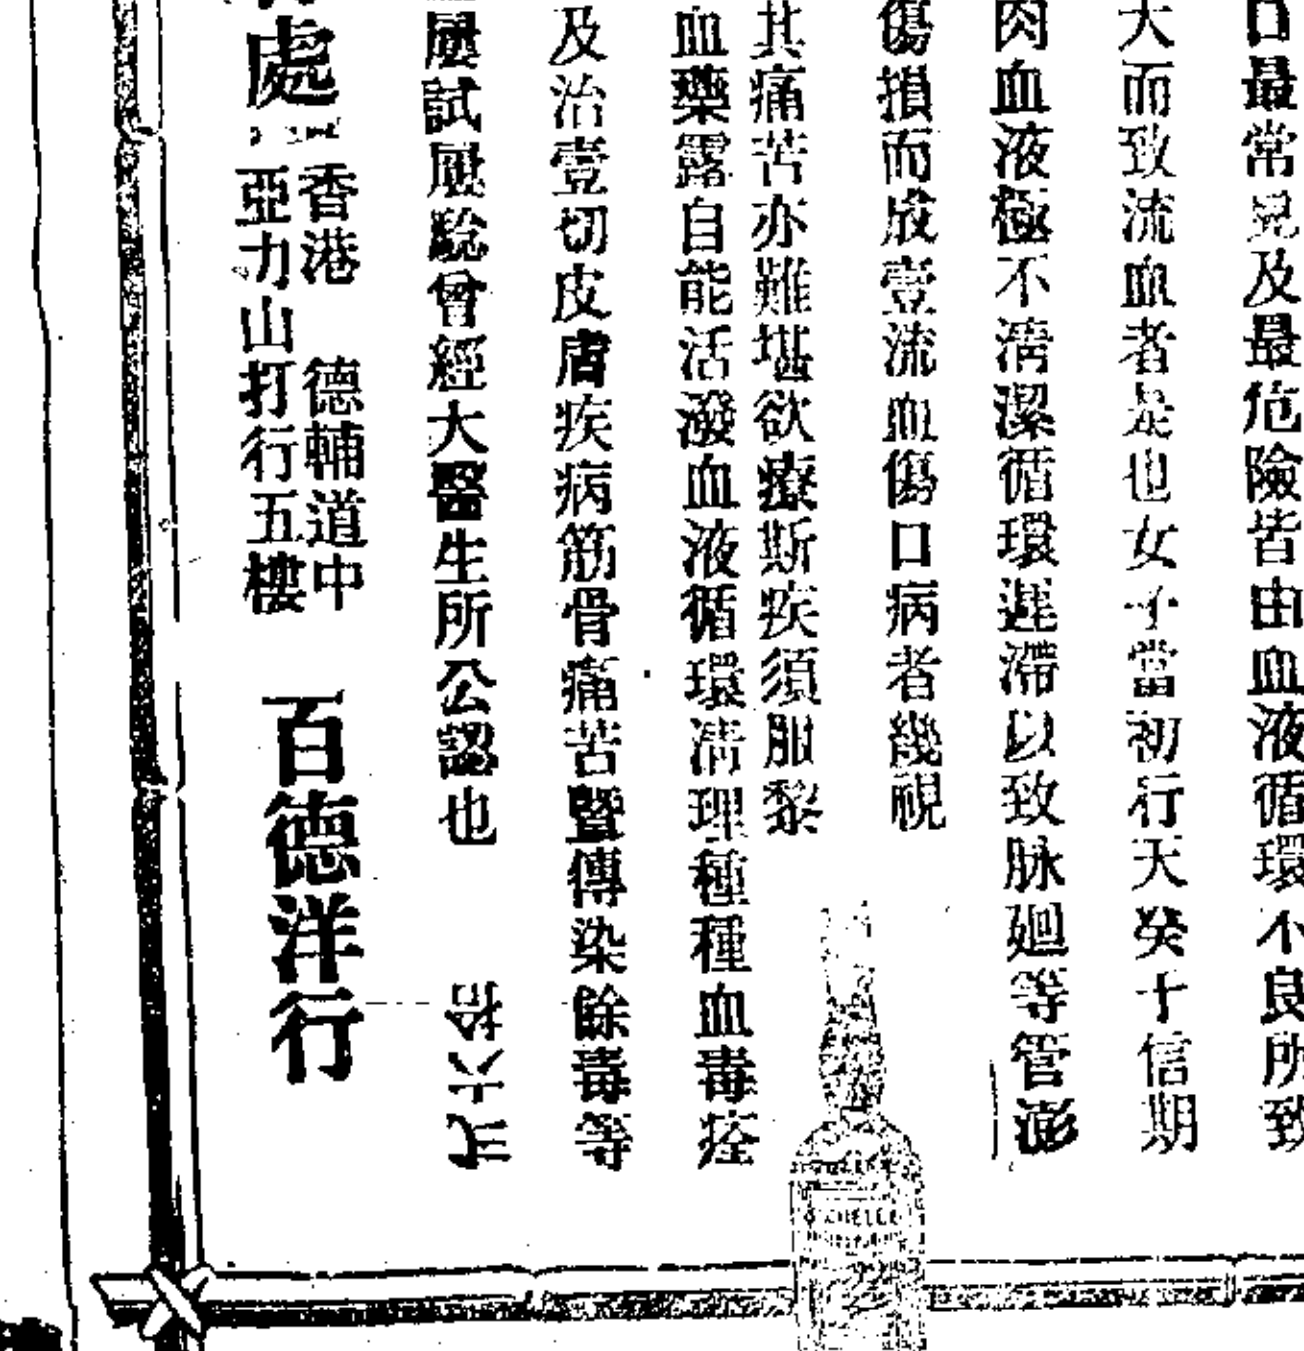 口最常見及最危險皆由血液循環不良所致
大而致流血者是也女子當初行天癸十信期
肉血液極不清潔循環遲滯以致脉廻等管澎
傷損而成壹流血傷口病者幾視
其痛苦亦難堪欲療斯疾須服黎
血藥露自能活潑血液循環清理種種血毒痊
及治壹切皮膚疾病筋骨痛苦暨傳染餘毒等
屢試屢驗曾經大醫生所公認也
拾六弍
處
香港 德輔道中
亞力山打行五樓
百德洋行